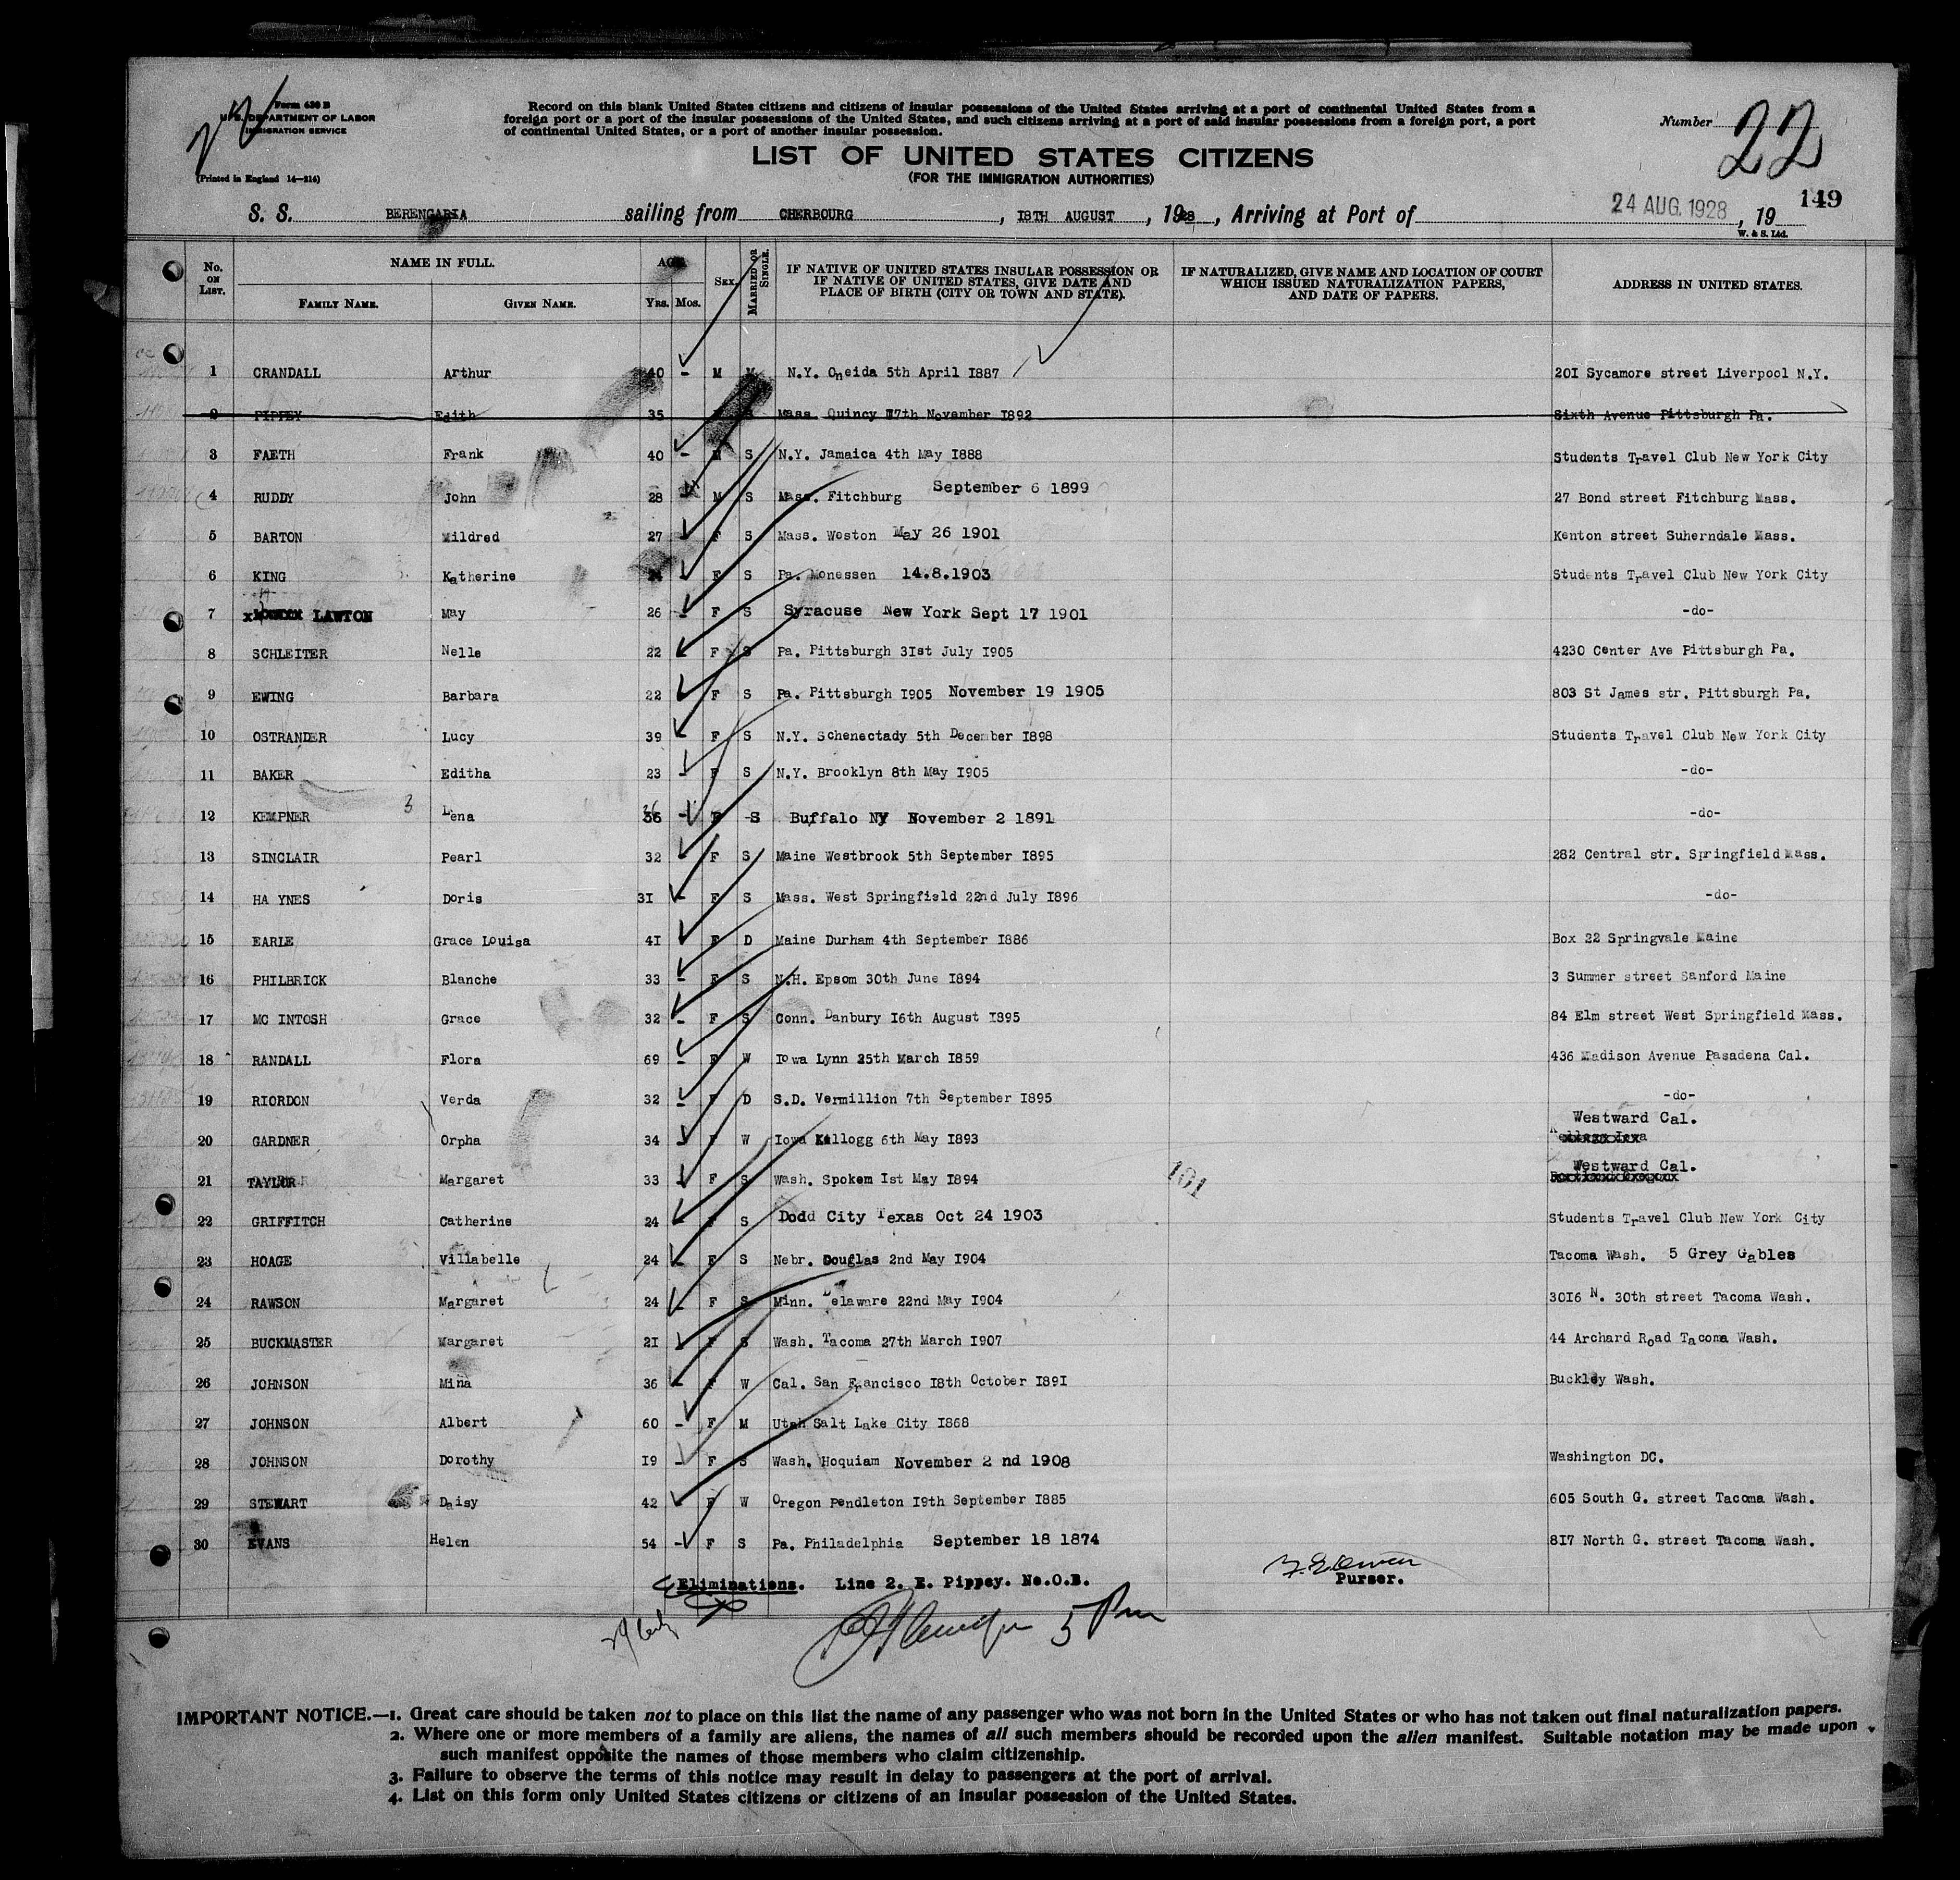 Form 630 B
U.S. DEPARTMENT OF LABOR
IMMIGRATION SERVICE
(Printed in England 14—214)
Record on this blank United States citizens and citizens of insular possessions of the United States arriving at a port of continental United States from a
foreign port or a port of the insular possessions of the United States, and such citizens arriving at a port of said insular possessions from a foreign port, a port
of continental United States, or a port of another insular possession.
Number 22
LIST OF UNITED STATES CITIZENS
(FOR THE IMMIGRATION AUTHORITIES)
149
S. S. BERENGARIA sailing from CHERBOURG, I8TH AUGUST, 1928, Arriving at Port of 24 AUG. 1928, 19
W. & S. Ltd.
No. ON LIST. NAME IN FULL. FAMILY NAME. GIVEN NAME. AGE. Yrs. Mos. SEX. MARRIED OR SINGLE. IF NATIVE OF UNITED STATES INSULAR POSSESSION OR IF NATIVE OF UNITED STATES, GIVE DATE AND PLACE OF BIRTH (CITY OR TOWN AND STATE). IF NATURALIZED, GIVE NAME AND LOCATION OF COURT WHICH ISSUED NATURALIZATION PAPERS, AND DATE OF PAPERS. ADDRESS IN UNITED STATES.
1 CRANDALL Arthur 40 - M M N.Y. Oneida 5th April I887 20I Sycamore street Liverpool N.Y.
2 PIPPEY Edith 35 S Mass. Quincy I7th November I892 Sixth Avenue Pittsburgh Pa.
3 FAETH Frank 40 - M S N.Y. Jamaica 4th May I888 Students Travel Club New York City
4 RUDDY John 28 M S Mass. Fitchburg September 6 1899 27 Bond street Fitchburg Mass.
5 BARTON Mildred 27 - F S Mass. Weston May 26 1901 Kenton street Suherndale Mass.
6 KING Katherine - F S Pa. Monessen 14.8.1903 Students Travel Club New York City
7 LAWTON May 26 - F S Syracuse New York Sept 17 1901 -do-
8 SCHLEITER Nelle 22 - F S Pa. Pittsburgh 3Ist July I905 4230 Center Ave Pittsburgh Pa.
9 EWING Barbara 22 - F S Pa. Pittsburgh I905 November 19 1905 803 St James str. Pittsburgh Pa.
10 OSTRANDER Lucy 39 - F S N.Y. Schenectady 5th December I898 Students Travel Club New York City
11 BAKER Editha 23 - F S N.Y. Brooklyn 8th May I905 -do-
12 KEMPNER Lena 36 - F -S Buffalo NY November 2 1891 -do-
13 SINCLAIR Pearl 32 - F S Maine Westbrook 5th September I895 282 Central str. Springfield Mass.
14 HA YNES Doris 3I - F S Mass. West Springfield 22nd July I896 -do-
15 EARLE Grace Louisa 4I - F D Maine Durham 4th September I886 Box 22 Springvale Maine
16 PHILBRICK Blanche 33 - F S N.H. Epsom 30th June I894 3 Summer street Sanford Maine
17 MC INTOSH Grace 32 - F S Conn. Danbury I6th August I895 84 Elm street West Springfield Mass.
18 RANDALL Flora 69 - F W Iowa Lynn 25th March I859 436 Madison Avenue Pasadena Cal.
19 RIORDON Verda 32 - F D S.D. Vermillion 7th September I895 -do-
20 GARDNER Orpha 34 - F W Iowa Killogg 6th May I893 Westward Cal.
21 TAYLOR Margaret 33 - F S Wash. Spokem Ist May I894 Westward Cal.
101
22 GRIFFITCH Catherine 24 - F S Dodd City Texas Oct 24 1903 Students Travel Club New York City
23 HOAGE Villabelle 24 - F S Nebr. Douglas 2nd May I904 Tacoma Wash. 5 Grey Gables
24 RAWSON Margaret 24 - F S Minn. Delaware 22nd May I904 30I6 N. 30th street Tacoma Wash.
25 BUCKMASTER Margaret 2I - F S Wash. Tacoma 27th March I907 44 Archard Road Tacoma Wash.
26 JOHNSON Mina 36 - F W Cal. San Francisco I8th October I89I Buckley Wash.
27 JOHNSON Albert 60 - F M Utah Salt Lake City I868
28 JOHNSON Dorothy I9 - F S Wash. Hoquiam November 2 nd 1908 Washington DC.
29 STEWART Daisy 42 - F W Oregon Pendleton I9th September I885 605 South G. street Tacoma Wash.
30 EVANS Helen 54 - F S Pa. Philadelphia September 18 1874 8I7 North G. street Tacoma Wash.
Eliminations. Line 2. E. Pippey. No.O.B.
Purser.
5 Pm
IMPORTANT NOTICE.—1. Great care should be taken not to place on this list the name of any passenger who was not born in the United States or who has not taken out final naturalization papers.
2. Where one or more members of a family are aliens, the names of all such members should be recorded upon the alien manifest. Suitable notation may be made upon
such manifest opposite the names of those members who claim citizenship.
3. Failure to observe the terms of this notice may result in delay to passengers at the port of arrival.
4. List on this form only United States citizens or citizens of an insular possession of the United States.